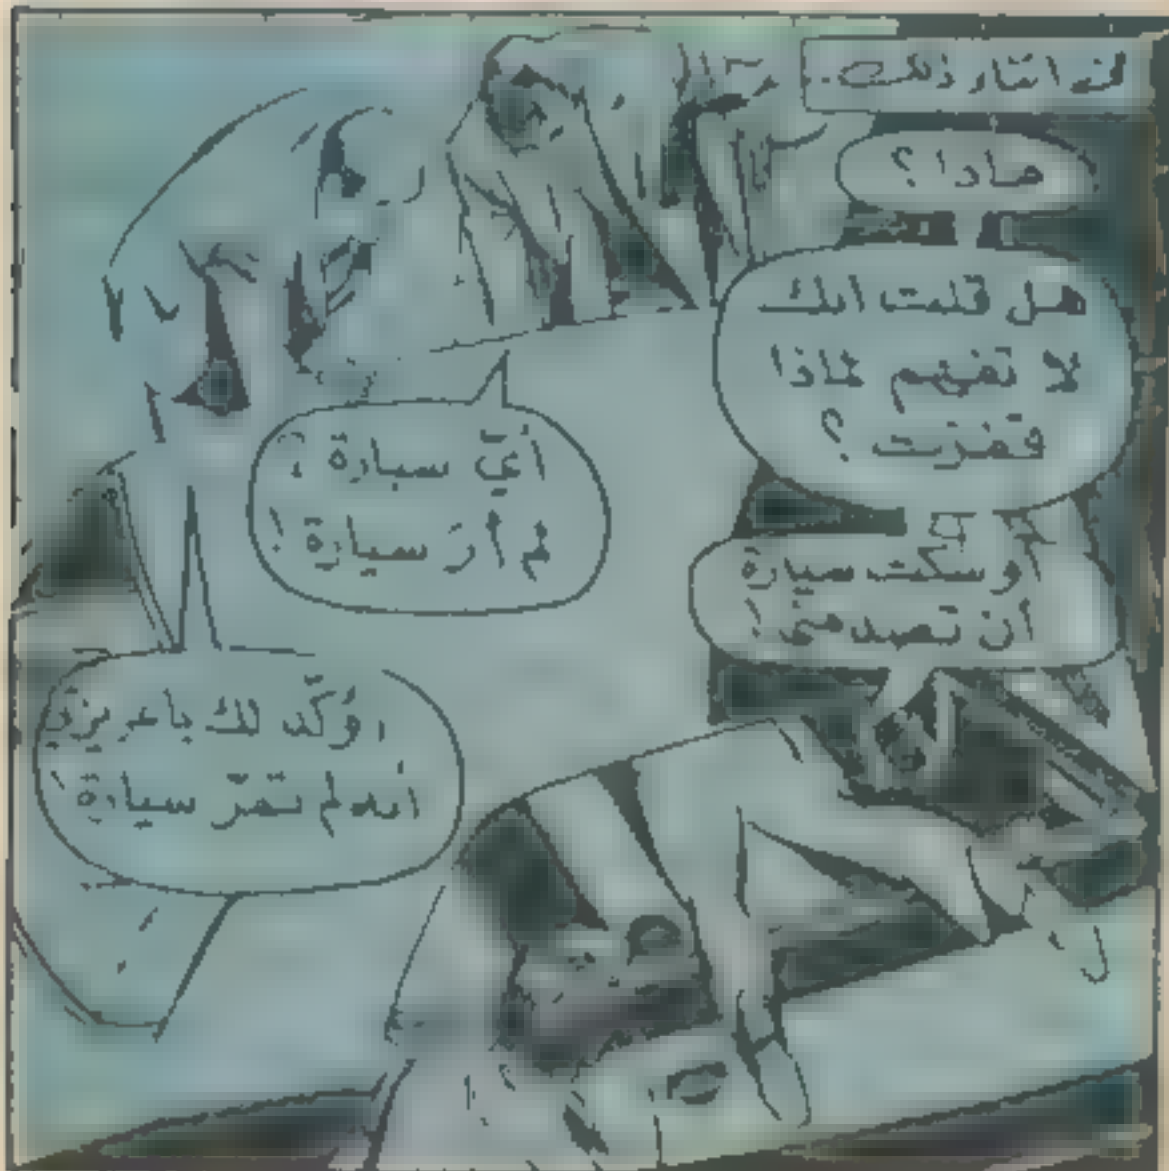 ماذا ؟
هل قلت انك
لا تفهم لماذا
قفزت ؟
أوشكت سيارة
أن تصدمني !
أيّ سيارة ؟
لم أرَ سيارة !
اؤكّد لك ياعزيزي
انه لم تمرّ سيارة !